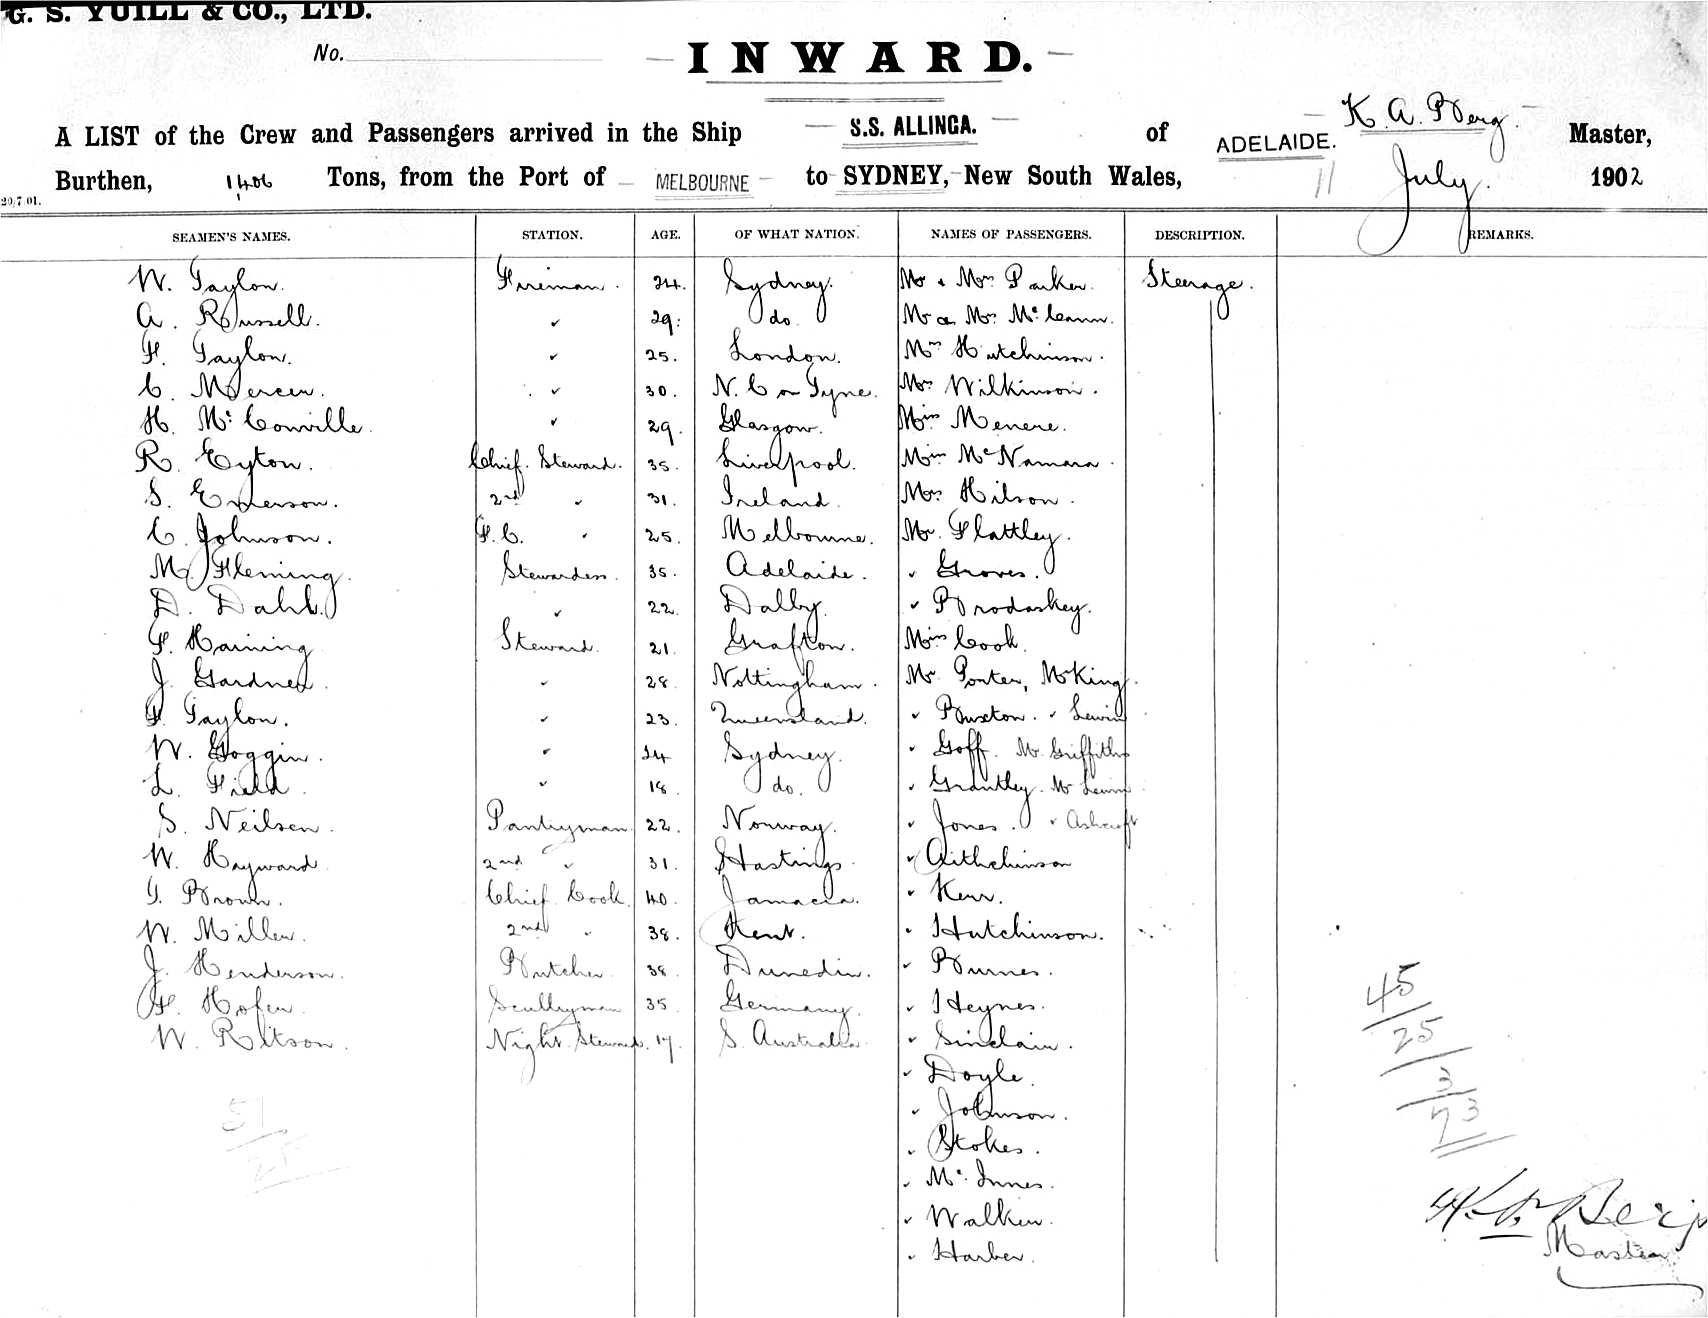 G. S. YUILL & CO., LTD.
No.
INWARD.
A LIST of the Crew and Passengers arrived in the Ship S.S. ALLINGA. of ADELAIDE. K. A. Berg. Master,
Burthen, 1406 Tons, from the Port of MELBOURNE to SYDNEY, New South Wales, 11 July. 1902
20/7.01.
SEAMEN'S NAMES. STATION. AGE. OF WHAT NATION. NAMES OF PASSENGERS. DESCRIPTION. REMARKS.
W. Taylor. Fireman. 24. Sydney. Mr & Mrs Parker. Steerage.
A. Russell. " 29. do. Mr & Mrs McCann.
F. Taylor. " 25. London. Mrs Hutchinson.
C. Mercer. " 30. N. C on Tyne. Mrs Wilkinson.
H. McConville. " 29. Glasgow. Miss Menere.
R. Eyton. Chief. Steward. 35. Liverpool. Miss McNamara.
S. Emerson. 2nd " 31. Ireland. Mrs Hilson.
C. Johnson. F.C. " 25. Melbourne. Mr. Flattley.
M. Fleming. Stewardess. 35. Adelaide. " Groves.
D. Dahl. " 22. Dalby. " Brodaskey.
F. Haining Steward. 21. Grafton. Miss Cook.
J. Gardner. " 28. Nottingham. Mr Porter, Mr King.
F. Taylor. " 23. Queensland. " Buxton. " Lewin
W. Goggin. " 24 Sydney. " Goff. Mr Griffiths
L. Field. " 18. do. " Grantley. Mr Lewin
S. Neilsen. Pantryman 22. Norway. " Jones. " Ashcroft
W. Hayward. 2nd " 31. Hastings. " Aithchinson
T. Brown. Chief Cook. 40. Jamacia. " Kerr.
W. Miller. 2nd " 38. Kent. " Hutchinson.
J. Henderson. Butcher. 38. Dunedin. " Burnes.
F. Hofer. Scullyman 35 Germany. " Heynes.
W. Ritson. Night Steward. 17. S. Australia. " Sinclair.
" Doyle.
" Johnson.
" Stokes.
" McInnes.
" Walker.
" Harber.
45
25
3
73
51
K. A. Berg
Master